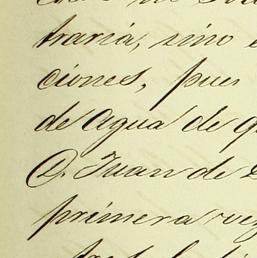 traria, sino
ciones, pues
de Agua de
D. Juan de
primera vez